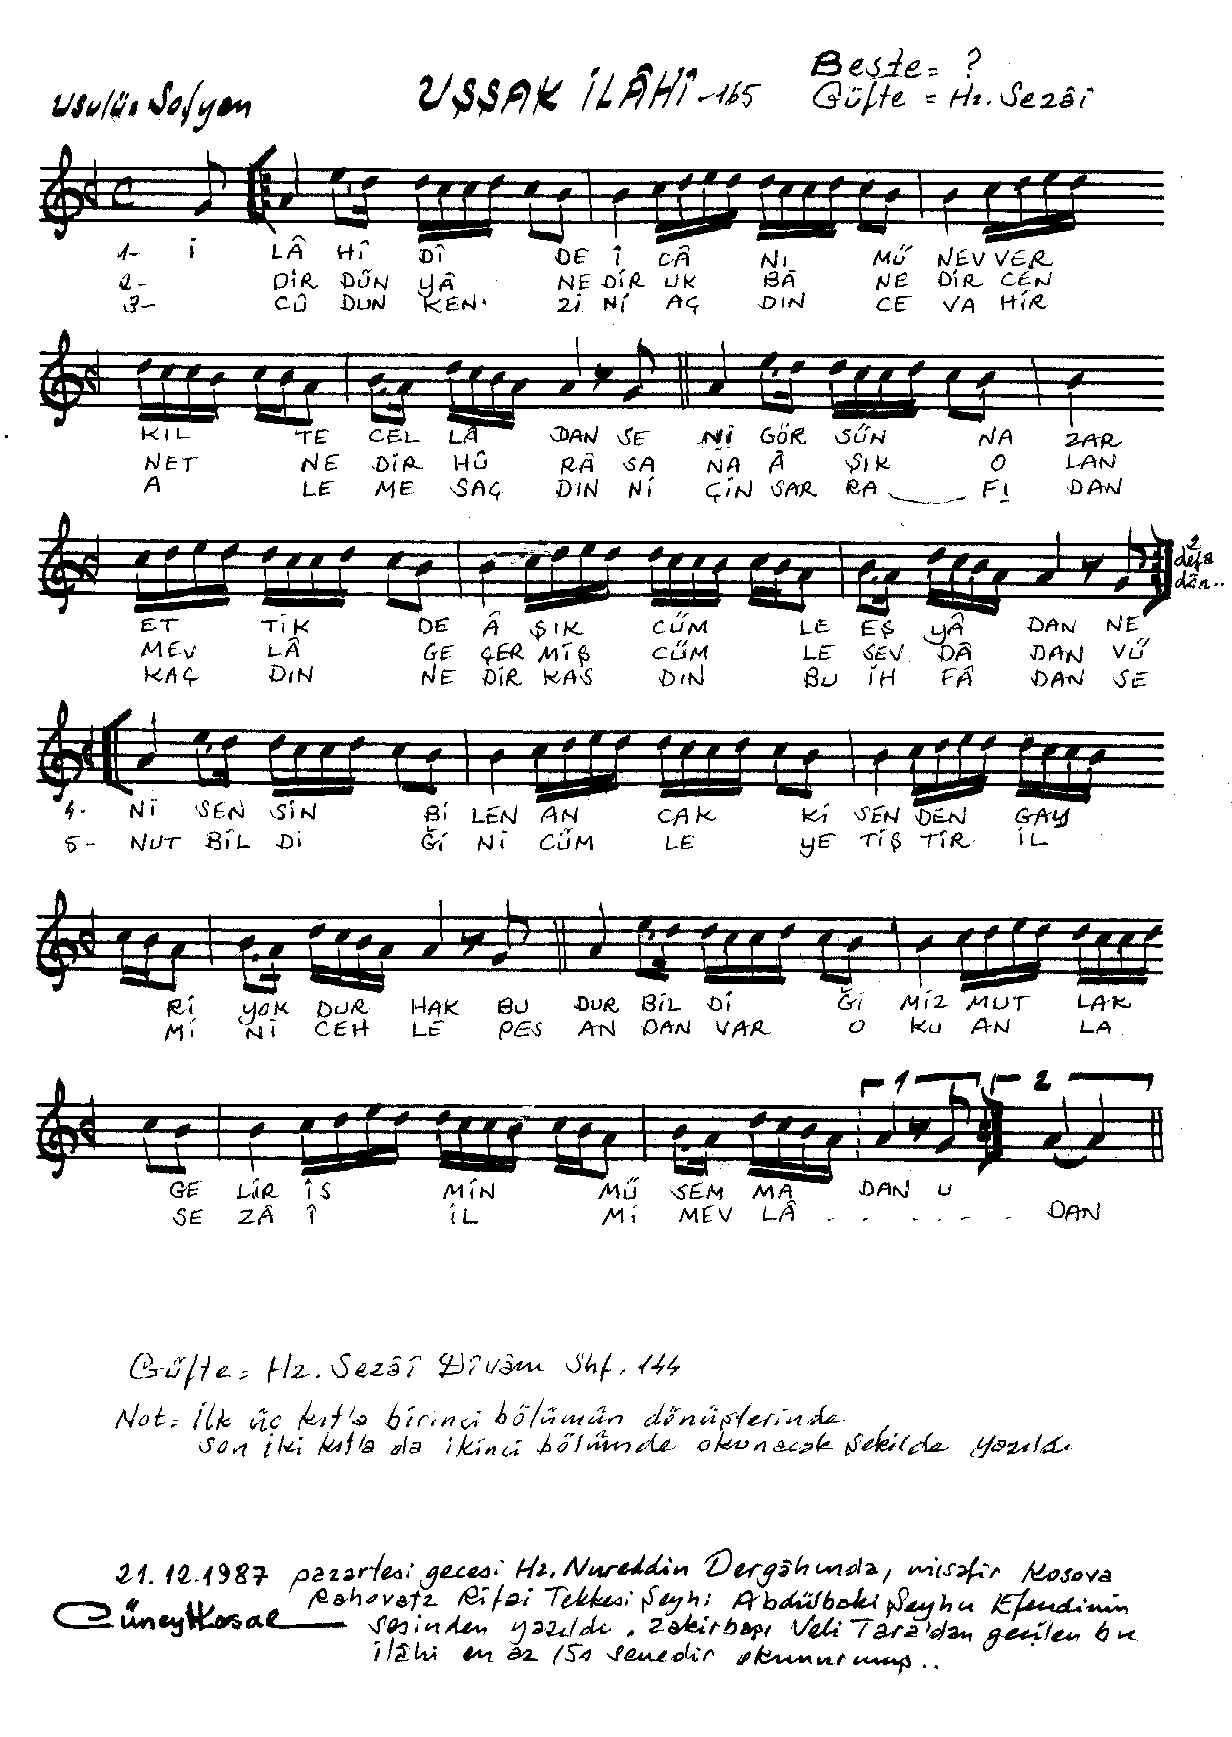 Usulü: Sofyan
UŞŞAK İLÂHÎ - 165
Beste = ?
Güfte = Hz. Sezâî
1- İ LÂ HÎ DÎ DE Î CÂ NI MÜ NEV VER
2- DİR DÜN YÂ NE DİR UK BÂ NE DİR CEN
3- CÛ DUN KEN Zİ Nİ AÇ DIN CE VA HİR
KIL TE CEL LÂ DAN SE Nİ GÖR SÜN NA ZAR
NET NE DİR HÛ RÂ SA NA Â ŞIK O LAN
A LE ME SAÇ DIN Nİ ÇİN SAR RA FI DAN
ET TİK DE Â ŞIK CÜM LE EŞ YÂ DAN NE
MEV LÂ GE ÇER MİŞ CÜM LE SEV DÂ DAN VÜ
KAÇ DIN NE DİR KAS DIN BU İH FÂ DAN SE
2 defa dan..
4- Nİ SEN SİN Bİ LEN AN CAK Kİ SEN DEN GAY
5- NUT BİL Dİ Ğİ Nİ CÜM LE YE TİŞ TİR İL
Rİ YOK DUR HAK BU DUR BİL Dİ Ğİ MİZ MUT LAK
Mİ Nİ CEH LE PES AN DAN VAR O KU AN LA
1 2
GE LİR İS MİN MÜ SEM MA DAN U
SE ZÂ Î İL Mİ MEV LÂ . . . . . . DAN
Güfte = Hz. Sezâî Dîvânı Shf. 144
Not = İlk üç kıt'a birinci bölümün dönüşlerinde
son iki kıt'a da ikinci bölümde okunacak şekilde yazıldı
21.12.1987 pazartesi gecesi Hz. Nureddin Dergâhında, misafir Kosova
Rahovatz Rifai Tekkesi Şeyhi Abdülbaki Şeyhu Efendinin
Cüneyt Kosal sesinden yazıldı. Zakirbaşı Veli Tara'dan geçilen bu
ilâhi en az 150 senedir okunurmuş..